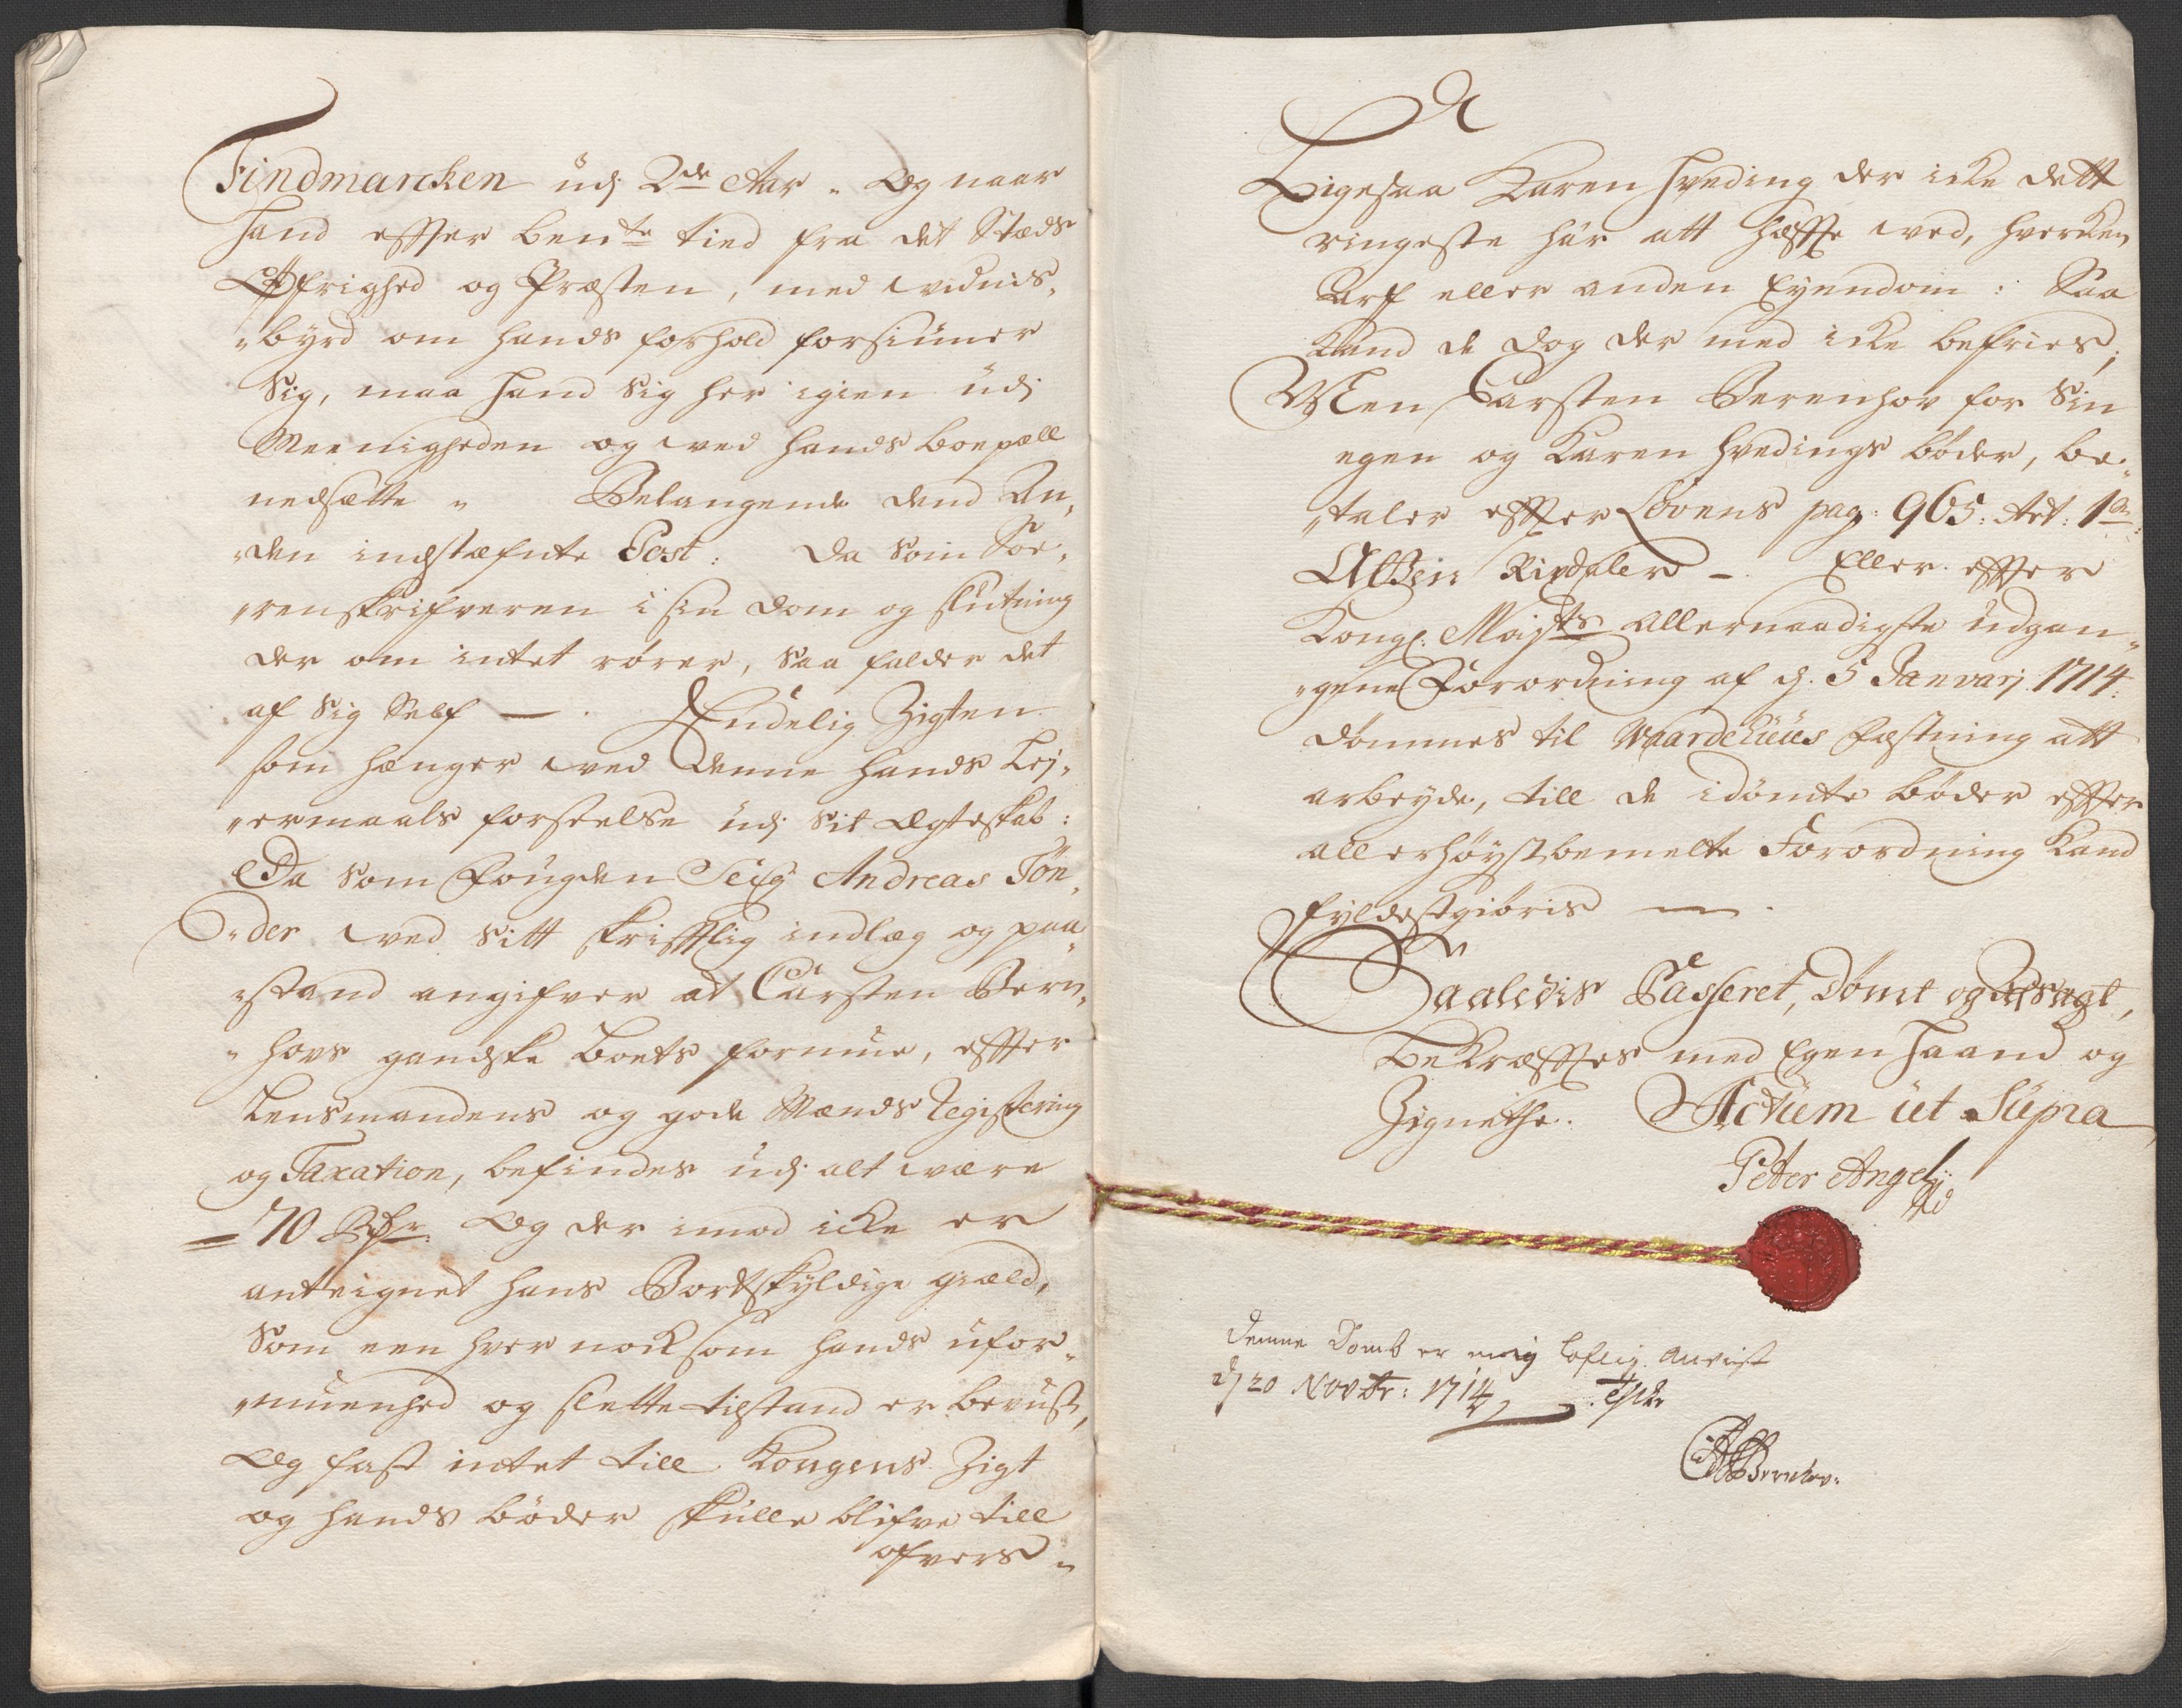 Findmarcken udj 2de Aar. Og naar
hand effter bente tied fra det Stæds
Øffrighed og Præsten, med vidnis,
"byrd om hands forhold forsiuner
Sig, maa hand Sig her igien udj
Meenigheden og ved hands boepæll
nedsætte " Belangende dend An,
"den indstæfnte Post: da Som Soe,
"renskrifveren i sin dom og slutning
der om intet rører, saa falder det
af Sig Self — Endelig Zigten
som hænger ved denne hands Lej,
"ermaals forseelse udj Sit Egteskab:
Da Som Fougden Seig Andreas Tøn,
"der ved Sitt skrifftlig indlæg og paa,
"stand angifver at Carsten Bern,
"hovs gandske boets formue, effter
Lensmandens og gode Mænds Registering
og Taxation, befindes udj alt være
= 70 Rdr. Og der imod icke er
anteignet hans Bortskyldige giæld,
Som een hver nocksom hands ufor,
"muenhed og slette tilstand er bevust,
Og fast intet till Kongens Zigt
og hands bøder skulle blifve till
ofvers "
Ligesaa Karen Hveding der icke dett
ringeste har att hæffte ved, hverken
Arf eller anden Eyendom: Saa
kand de dog der med icke befries,
Men Carsten Berenhov for Sin
egen og Karen Hvedings bøder, be,
"taler effter Lovens pag: 965: Art: 1te
Rixdaler — Eller effter
Kongl. Majts allernaadigste udgan,
"gene Forordning af d. 5 Januarj 1714.
dømmes til Waardehuus Fæstning att
arbeyde, till de idømte bøder effter
allerhøystbemelte Forordning kand
fyldestgiøris —
Saaledis Passeret, Dømt og Afsagt,
bekræfftes med Egen haand og
Zignethe. Actum ut Supra
Peter Angell
Denne Domb er mig loflig anvist
d 20 Novbr: 1714
Bernhov.